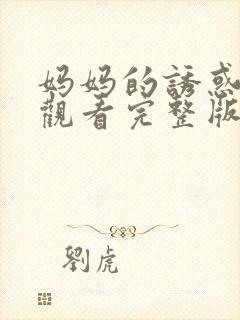 妈妈的誘惑
觀看完整版
劉虎